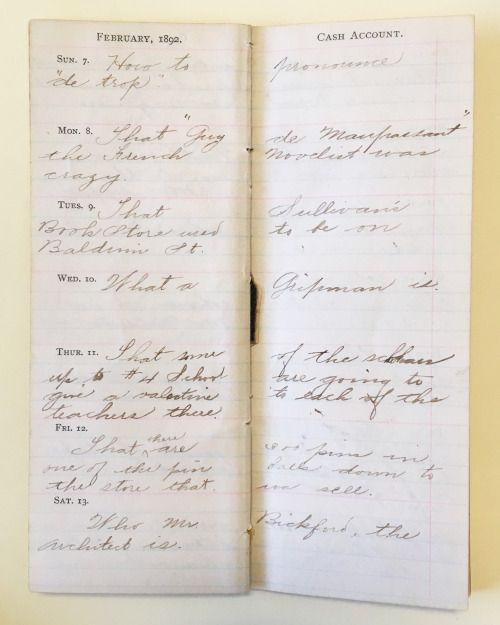 FEBRUARY, 1892. CASH ACCOUNT.
SUN. 7. How to pronounce
"de trop".
MON. 8. That "Guy de Maupassant"
the French Novelist was
crazy.
TUES. 9. That Sullivan's
Book Store used to be on
Baldwin St.
WED. 10. What a Gripman is.
THUR. 11. That some of the scholars
up to #4 School are going to
give a valentine to each of the
teachers there.
FRI. 12.
That there are 300 pins in
one of the pin down to
the store that we sell.
SAT. 13.
Who Mr. Bickford, the
architect is.